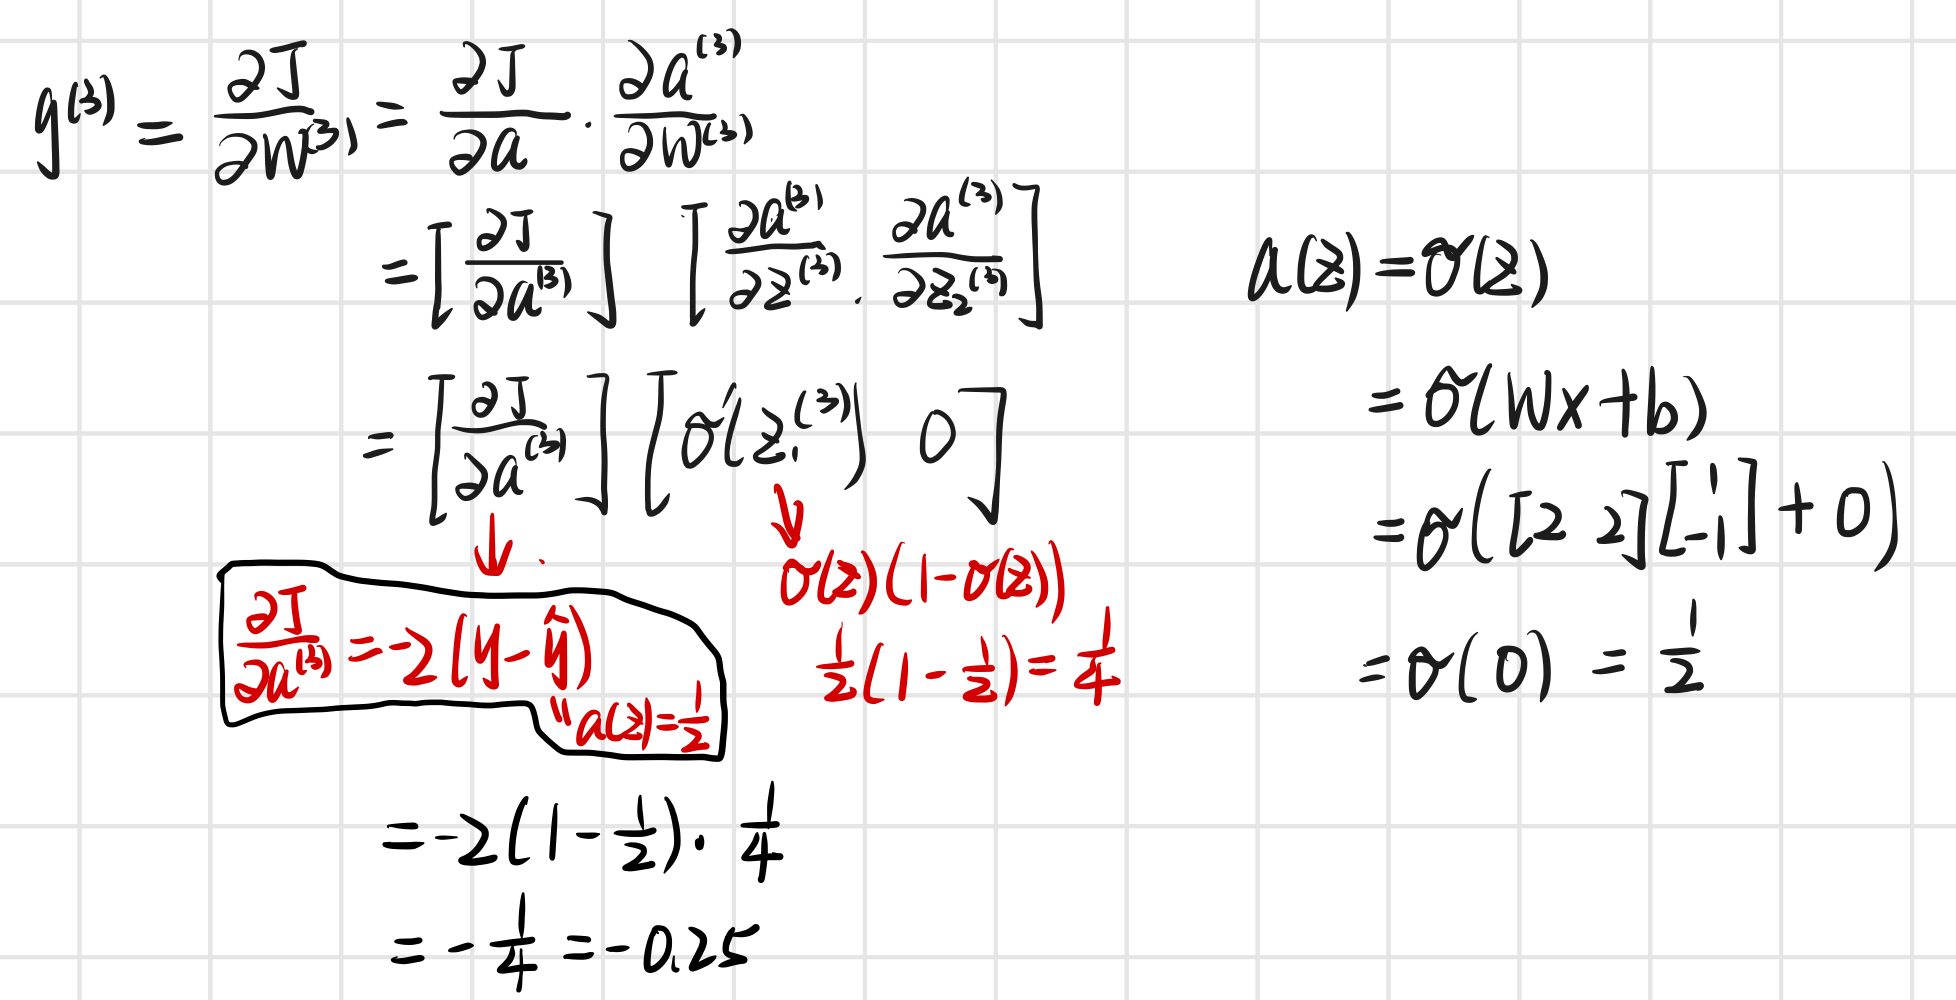 g^(3) = ∂J/∂W^(3) = ∂J/∂a · ∂a^(3)/∂W^(3)
= [∂J/∂a^(3)] [∂a^(3)/∂z^(3) . ∂a^(3)/∂z₂^(3)]
= [∂J/∂a^(3)] [σ'(z₁^(3)) 0]
↓ ↓
σ(z)(1-σ(z))
∂J/∂a^(3) = -2(y-ŷ)
"a(z)=1/2
1/2(1-1/2)=1/4
= -2(1-1/2)·1/4
= -1/4 = -0.25
a(z)=σ(z)
= σ(Wx+b)
= σ([2 2][1 -1] + 0)
= σ(0) = 1/2